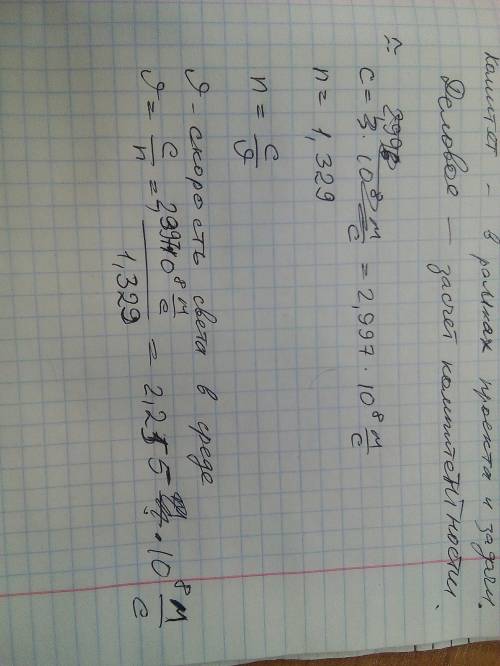 комитет - в рамках проекта и задачи.
Деловое — засчет компитентности.
c = 3·10⁸ м/с = 2,997·10⁸ м/с
n = 1,329
n = c/υ
υ - скорость света в среде
υ = c/n = 2,997·10⁸ м/с / 1,329 = 2,255·10⁸ м/с